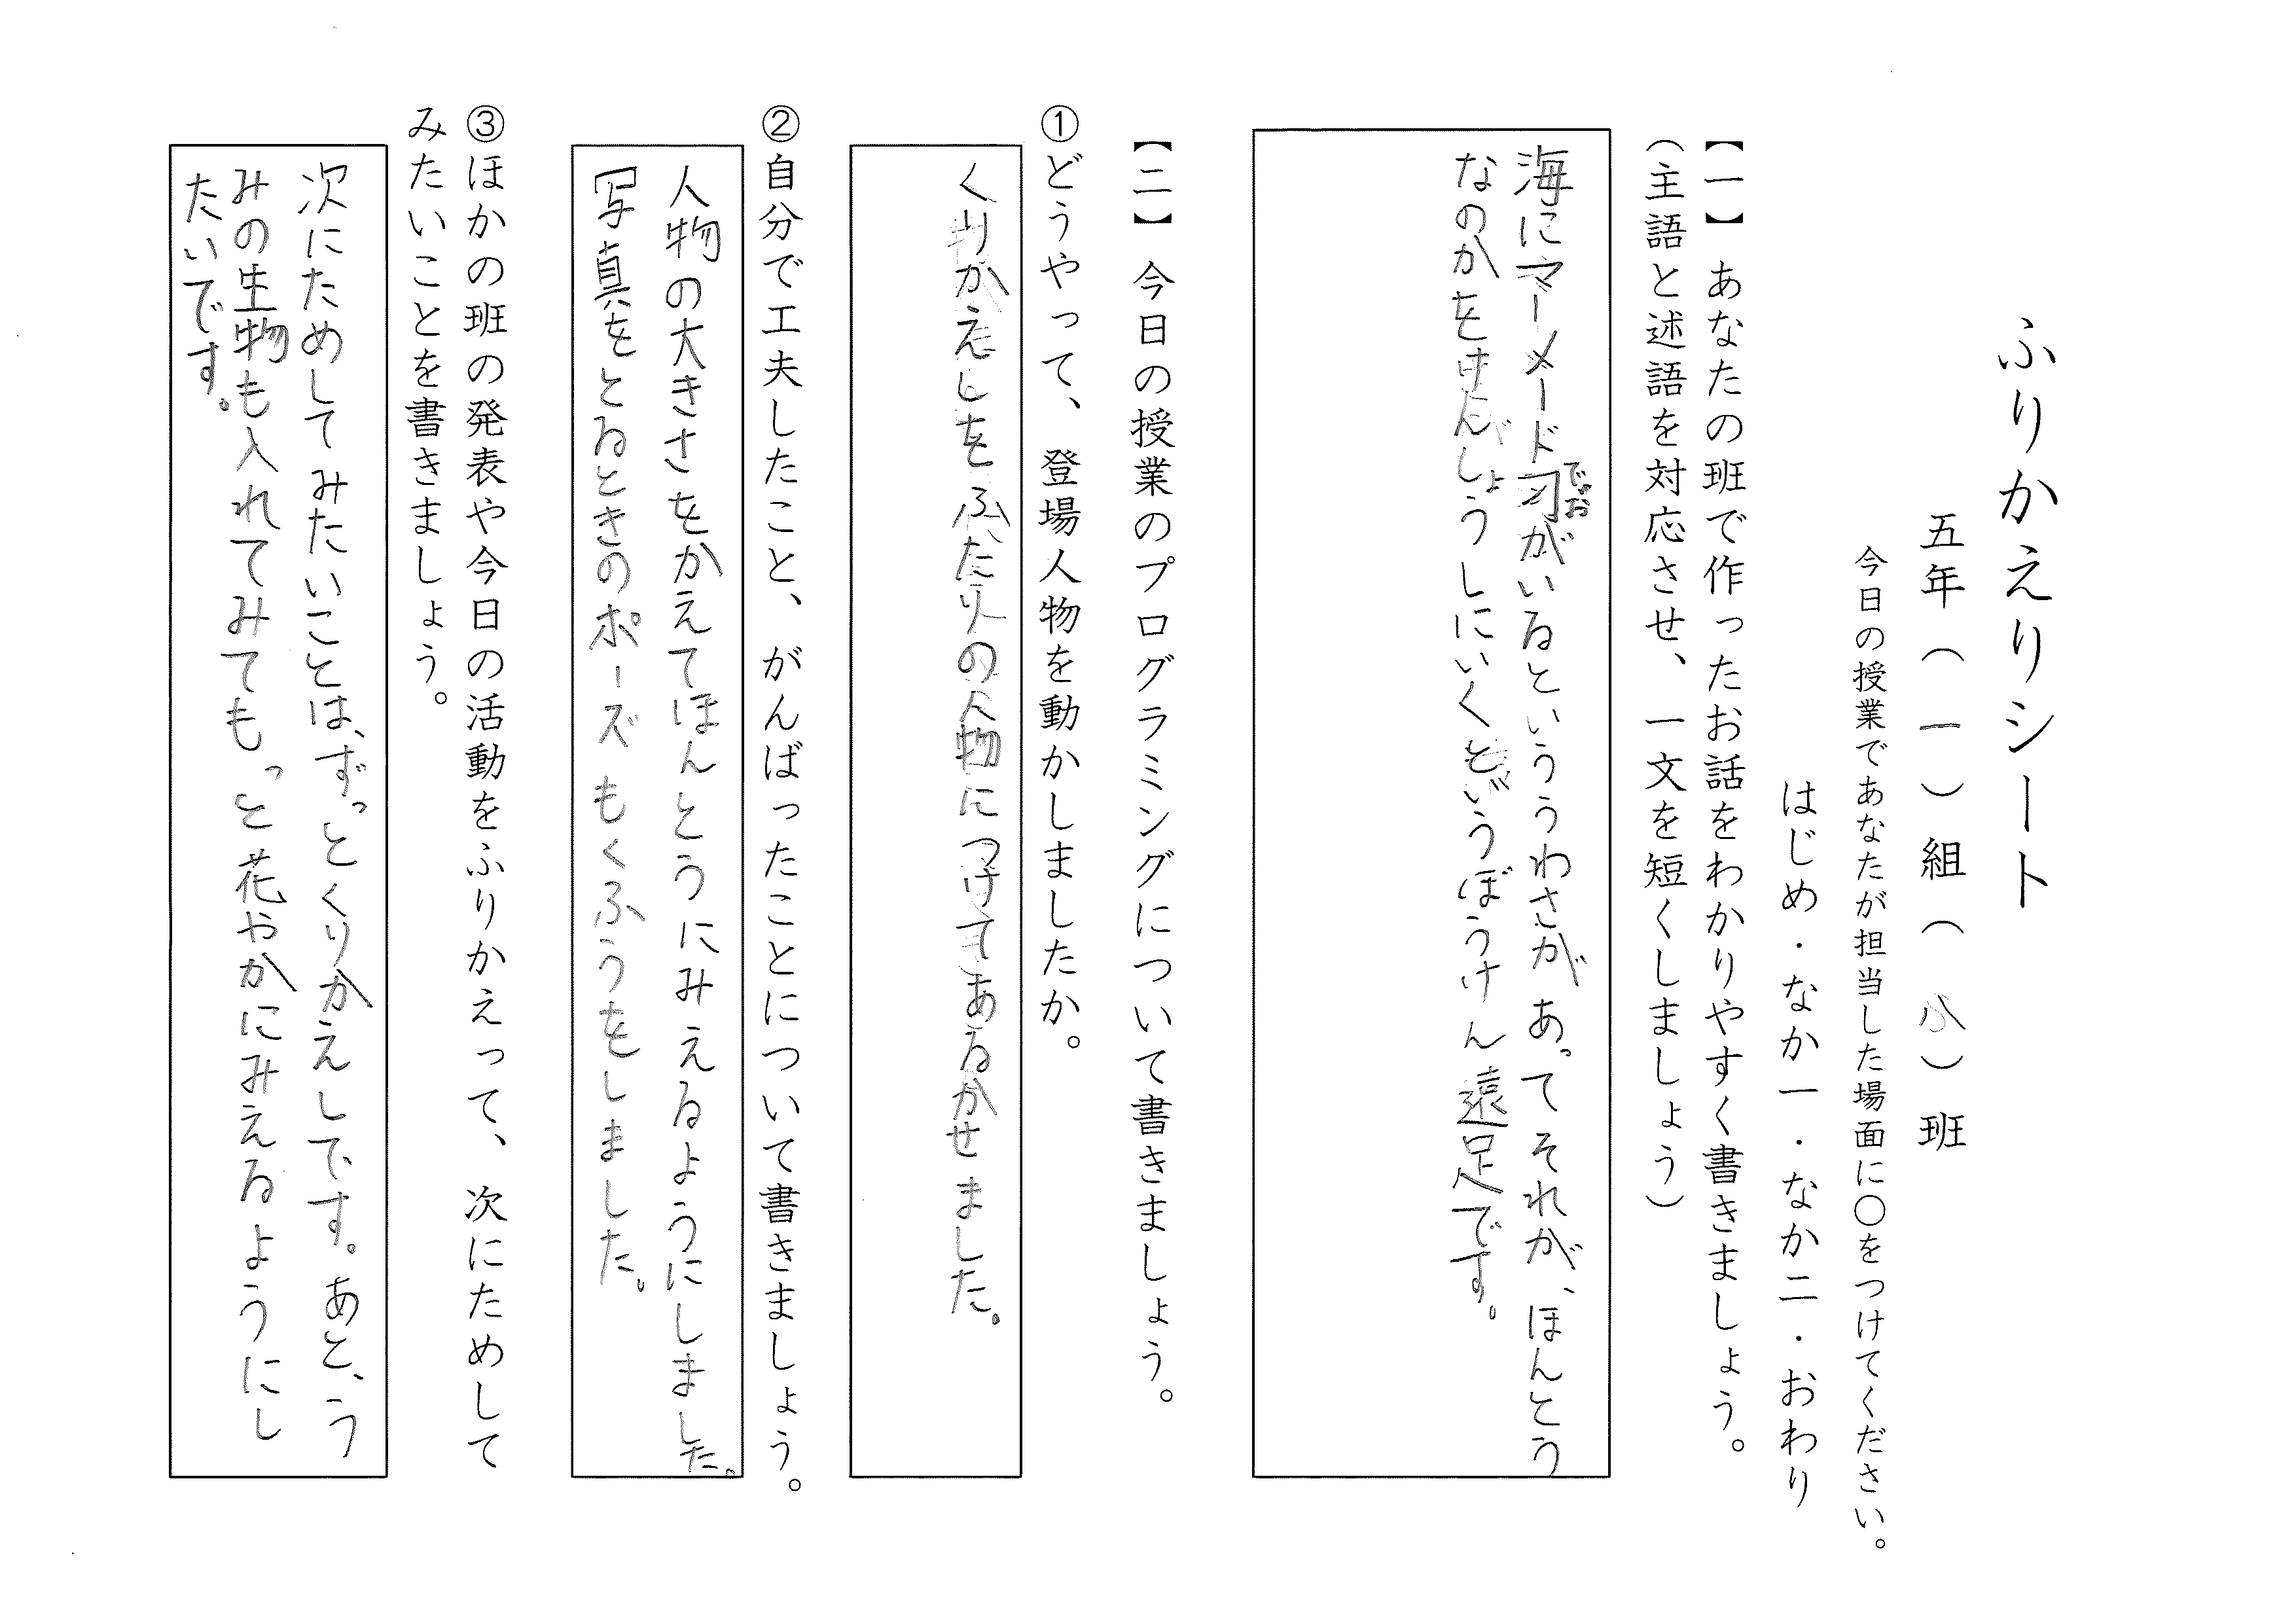 ふりかえりシート
五年（一）組（八）班
今日の授業であなたが担当した場面に○をつけてください。
はじめ・なか一・なか二・おわり
【一】あなたの班で作ったお話をわかりやすく書きましょう。
（主語と述語を対応させ、一文を短くしましょう）
海にマーメードがいるといううわさがあってそれが、ほんとう
なのかをけんしょうしにいくというぼうけん遠足です。
【二】今日の授業のプログラミングについて書きましょう。
①どうやって、登場人物を動かしましたか。
くりかえしをふたりの人物につけてあるかせました。
②自分で工夫したこと、がんばったことについて書きましょう。
人物の大きさをかえてほんとうにみえるようにしました。
写真をとるときのポーズもくふうをしました。
③ほかの班の発表や今日の活動をふりかえって、次にためして
みたいことを書きましょう。
次にためしてみたいことは、ずっとくりかえしです。あと、う
みの生物も入れてみてもっと花やかにみえるようにし
たいです。